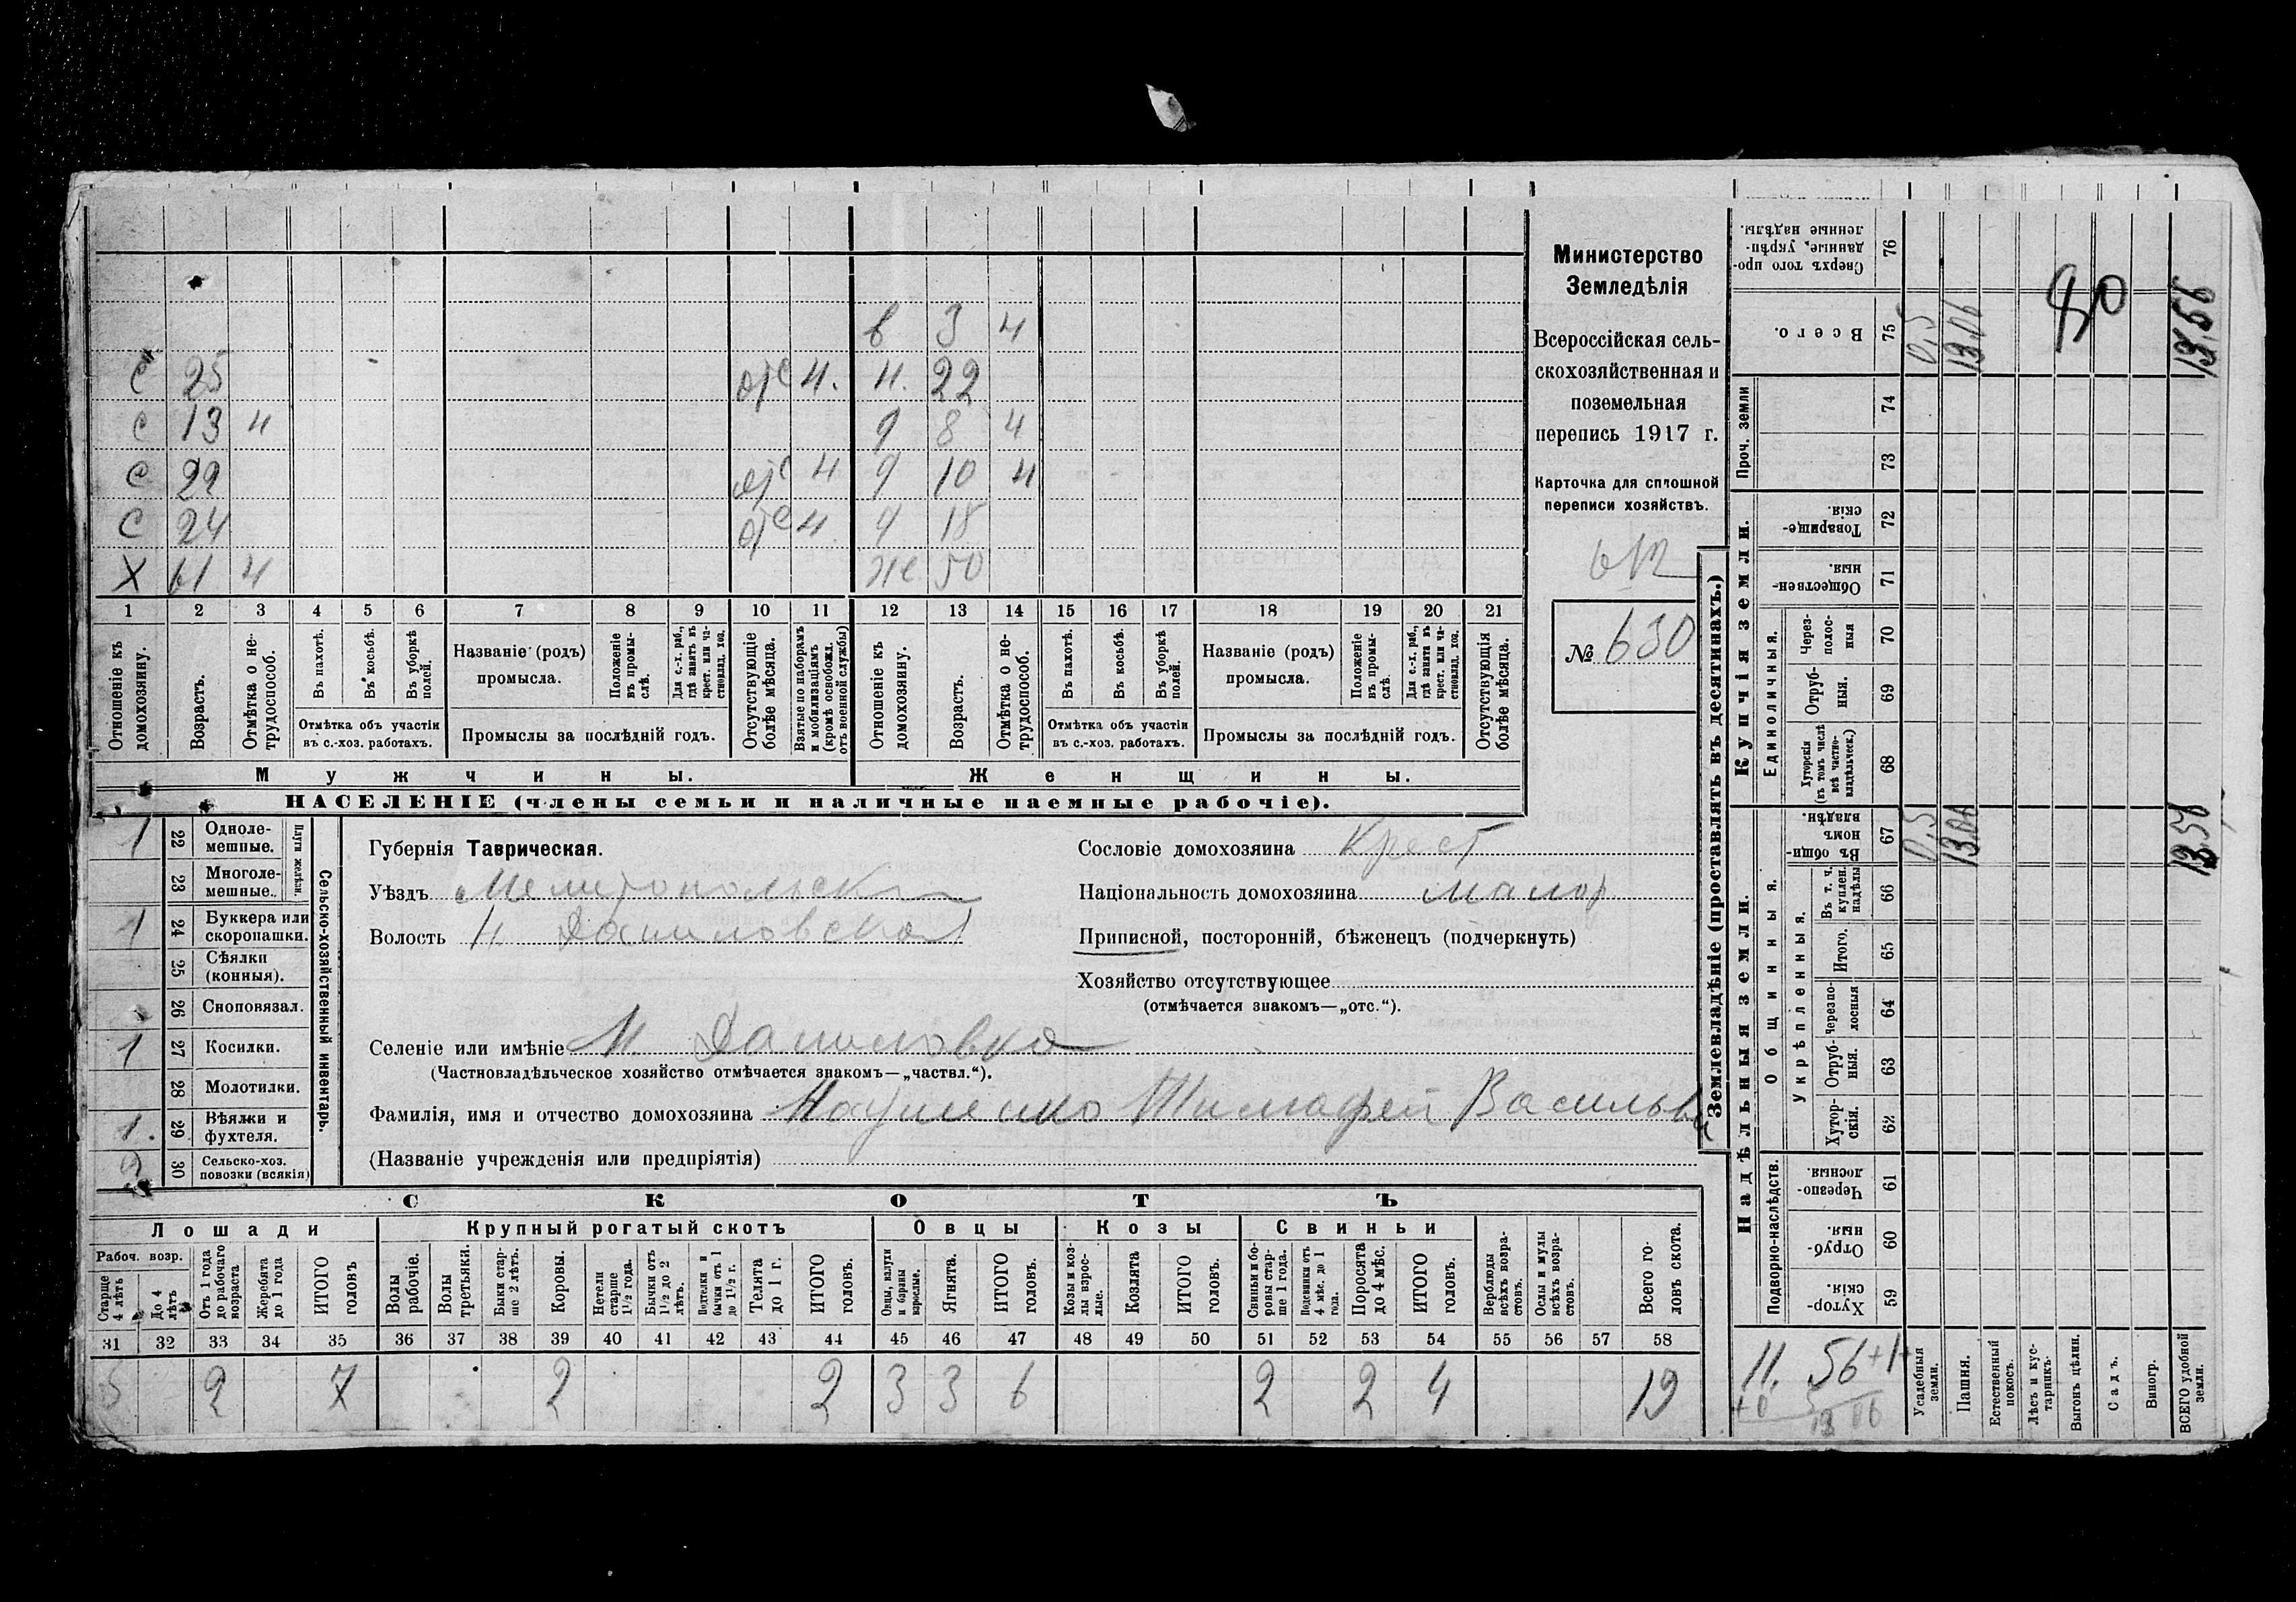 в 3 ч
С 25 отс ч. н. 22
С 13 ч д 8 ч
С 22 отс ч д 10 ч
С 24 отс ч д 18
Х 61 ч же 50
1 2 3 4 5 6 7 8 9 10 11 12 13 14 15 16 17 18 19 20 21
Отношеніе къ домохозяину.
Возрастъ.
Отмѣтка о не-трудоспособ.
Въ пахотѣ.
Въ косьбѣ.
Въ уборкѣ полей.
Отмѣтка объ участіи
въ с.-хоз. работахъ.
Названіе (родъ)
промысла.
Положеніе въ промы-слѣ.
Для с.-х. раб., гдѣ занятъ въ крест. или ча-стновлад. хоз.
Промыслы за послѣдній годъ.
Отсутствующіе болѣе мѣсяца.
Взятые по наборамъ и мобилизаціямъ (кромѣ освобожд. отъ военной службы)
Отношеніе къ домохозяину.
Возрастъ.
Отмѣтка о не-трудоспособ.
Въ пахотѣ.
Въ косьбѣ.
Въ уборкѣ полей.
Отмѣтка объ участіи
въ с.-хоз. работахъ.
Названіе (родъ)
промысла.
Положеніе въ промы-слѣ.
Для с.-х. раб., гдѣ занята въ крест. или ча-стновлад. хоз.
Промыслы за послѣдній годъ.
Отсутствующія болѣе мѣсяца.
Мужчины.
Женщины.
НАСЕЛЕНІЕ (члены семьи и наличные наемные рабочіе).
Министерство
Земледѣлія
Всероссійская сель-
скохозяйственная и
поземельная
перепись 1917 г.
Карточка для сплошной
переписи хозяйствъ.
№ 630
1 22 Одноле-мешные.
23 Многоле-мешные.
Плуги желѣзн.
1 24 Буккера или скоропашки.
25 Сѣялки (конныя).
26 Сноповязал.
1 27 Косилки.
28 Молотилки.
1. 29 Вѣялки и фухтеля.
2 30 Сельско-хоз. повозки (всякія)
Сельско-хозяйственный инвентарь.
Губернія Таврическая.
Уѣздъ Мелитопольск
Волость Н. Даниловская
Сословіе домохозяина Крест
Національность домохозяина малор
Приписной, посторонній, бѣженецъ (подчеркнуть)
Хозяйство отсутствующее
(отмѣчается знакомъ—„отс.“).
Селеніе или имѣніе Н. Даниловка
(Частновладѣльческое хозяйство отмѣчается знакомъ—„частвл.“).
Фамилія, имя и отчество домохозяина Науменко Тимофей Васильев
(Названіе учрежденія или предпріятія)
СКОТЪ
Лошади
Крупный рогатый скотъ
Овцы
Козы
Свиньи
Рабоч. возр.
Старше 4 лѣтъ
До 4 лѣтъ
Отъ 1 года до рабочаго возраста
Жеребята до 1 года
ИТОГО головъ
Волы рабочіе.
Волы третьяки.
Быки стар-ше 2 лѣтъ.
Коровы.
Нетели старше 1½ года.
Бычки отъ 1½ до 2 лѣтъ.
Подтелки и бычки отъ 1 до 1½ г.
Телята до 1 г.
ИТОГО головъ.
Овцы, валухи и бараны взрослые.
Ягнята.
ИТОГО головъ.
Козы и коз-лы взрос-лые.
Козлята
ИТОГО головъ.
Свиньи и бо-ровы стар-ше 1 года.
Подсвинки отъ 4 мѣс. до 1 года.
Поросята до 4 мѣс.
ИТОГО головъ.
Верблюды всѣхъ возра-стовъ.
Ослы и мулы всѣхъ возра-стовъ.
Всего го-ловъ скота.
31 32 33 34 35 36 37 38 39 40 41 42 43 44 45 46 47 48 49 50 51 52 53 54 55 56 57 58
5 2 7 2 2 3 3 6 2 2 4 19
Землевладѣніе (проставлять въ десятинахъ.)
Купчія земли.
Надѣльныя земли.
Проч. земли
Единоличныя.
Общинныя.
Укрѣпленныя.
Подворно-наслѣдств.
Сверхъ того про-данные, укрѣп-ленные надѣлы. 76
Всего. 75 0,5 13.06 13,56
74
73
Товарище-скія. 72
Обществен-ныя. 71
Через-полос-ныя 70
Отруб-ныя. 69
Хуторскія (въ томъ числѣ всѣ частно-владѣльческ.) 68
Въ общи-номъ владѣн. 67 0,5 13.06 13,56
Въ т. ч. куплен. надѣлы 66
Итого. 65
Черезпо-лосныя 64
Отруб-ныя. 63
Хутор-скія. 62
Черезпо-лосныя. 61
Отруб-ныя. 60
Хутор-скія. 59
11. 56+1+
Усадебныя земли.
Пашня.
Естественный покосъ.
Лѣсъ и кус-тарникъ.
Выгонъ цѣлин.
Садъ.
Виногр.
ВСЕГО удобной земли.